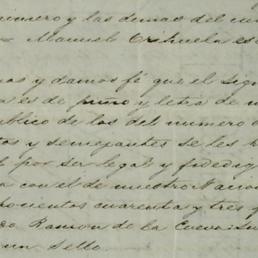 numero y las demas del
Manuel Orihuela es
mos y damos fé que el sign
a es de puño y letra de
publico de los del numero d
tos y semejantes se les
por ser legal y
a con el de nuestro Nacion
ocientos cuarenta y tres
Ramon de la Cueva
un Sello